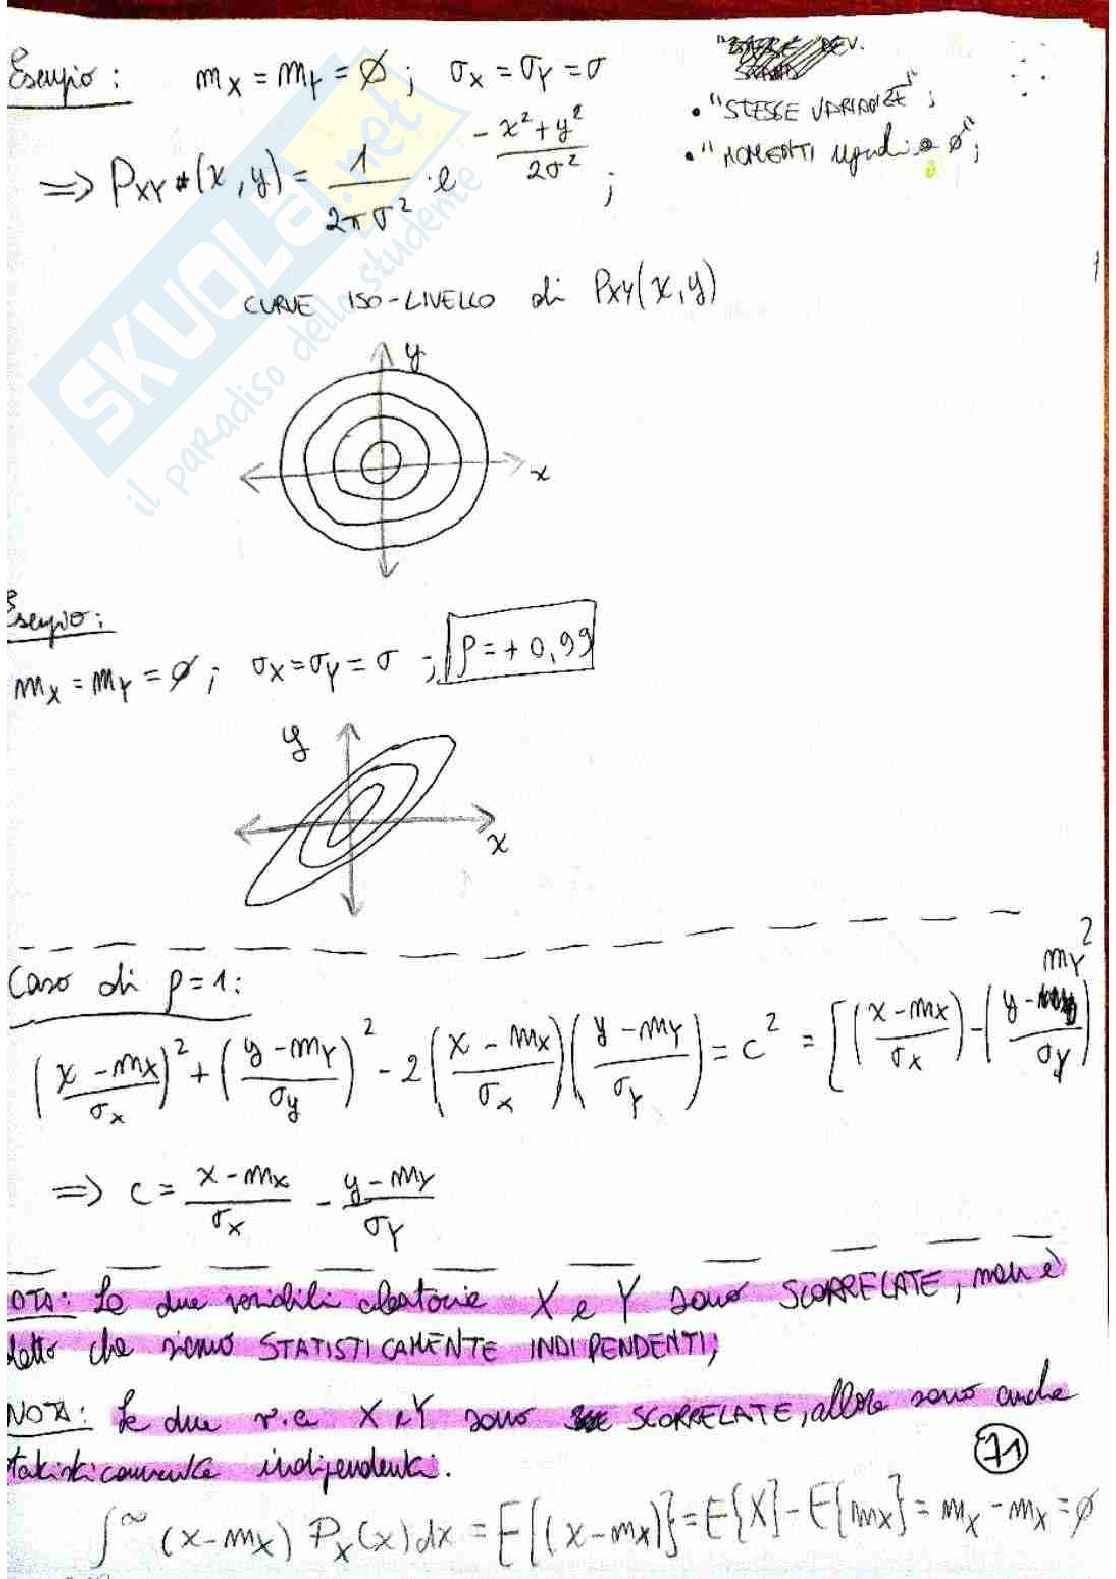 Esempio: mX = mY = ∅ ; σX = σY = σ
• "STESSE VARIANZE" ;
• "MOMENTI uguali a ∅" ;
=> PXY (x, y) = 1/(2πσ²) · e^(-(x²+y²)/(2σ²)) ;
CURVE ISO-LIVELLO di PXY(x,y)
y
x
Esempio:
mX = mY = ∅ ; σX = σY = σ ; ρ = + 0,99
y
x
Caso di ρ = 1 :
((x - mX)/σx)² + ((y - mY)/σy)² - 2((x - mX)/σX)((y - mY)/σY) = c² = [((x - mX)/σx) - ((y - mY)/σY)]²
=> c = (x - mX)/σX - (y - mY)/σY
OTA: Le due variabili aleatorie X e Y sono SCORRELATE, non è
detto che siano STATISTICAMENTE INDIPENDENTI;
NOTA: Se due v.a X e Y sono SCORRELATE, allora sono anche
tatisticamente indipendenti.
71
∫^∞ (x - mX) PX(x) dx = E{(x - mX)} = E{X} - E{mX} = mX - mX = ∅
SKUOLA.net
il paradiso dello studente